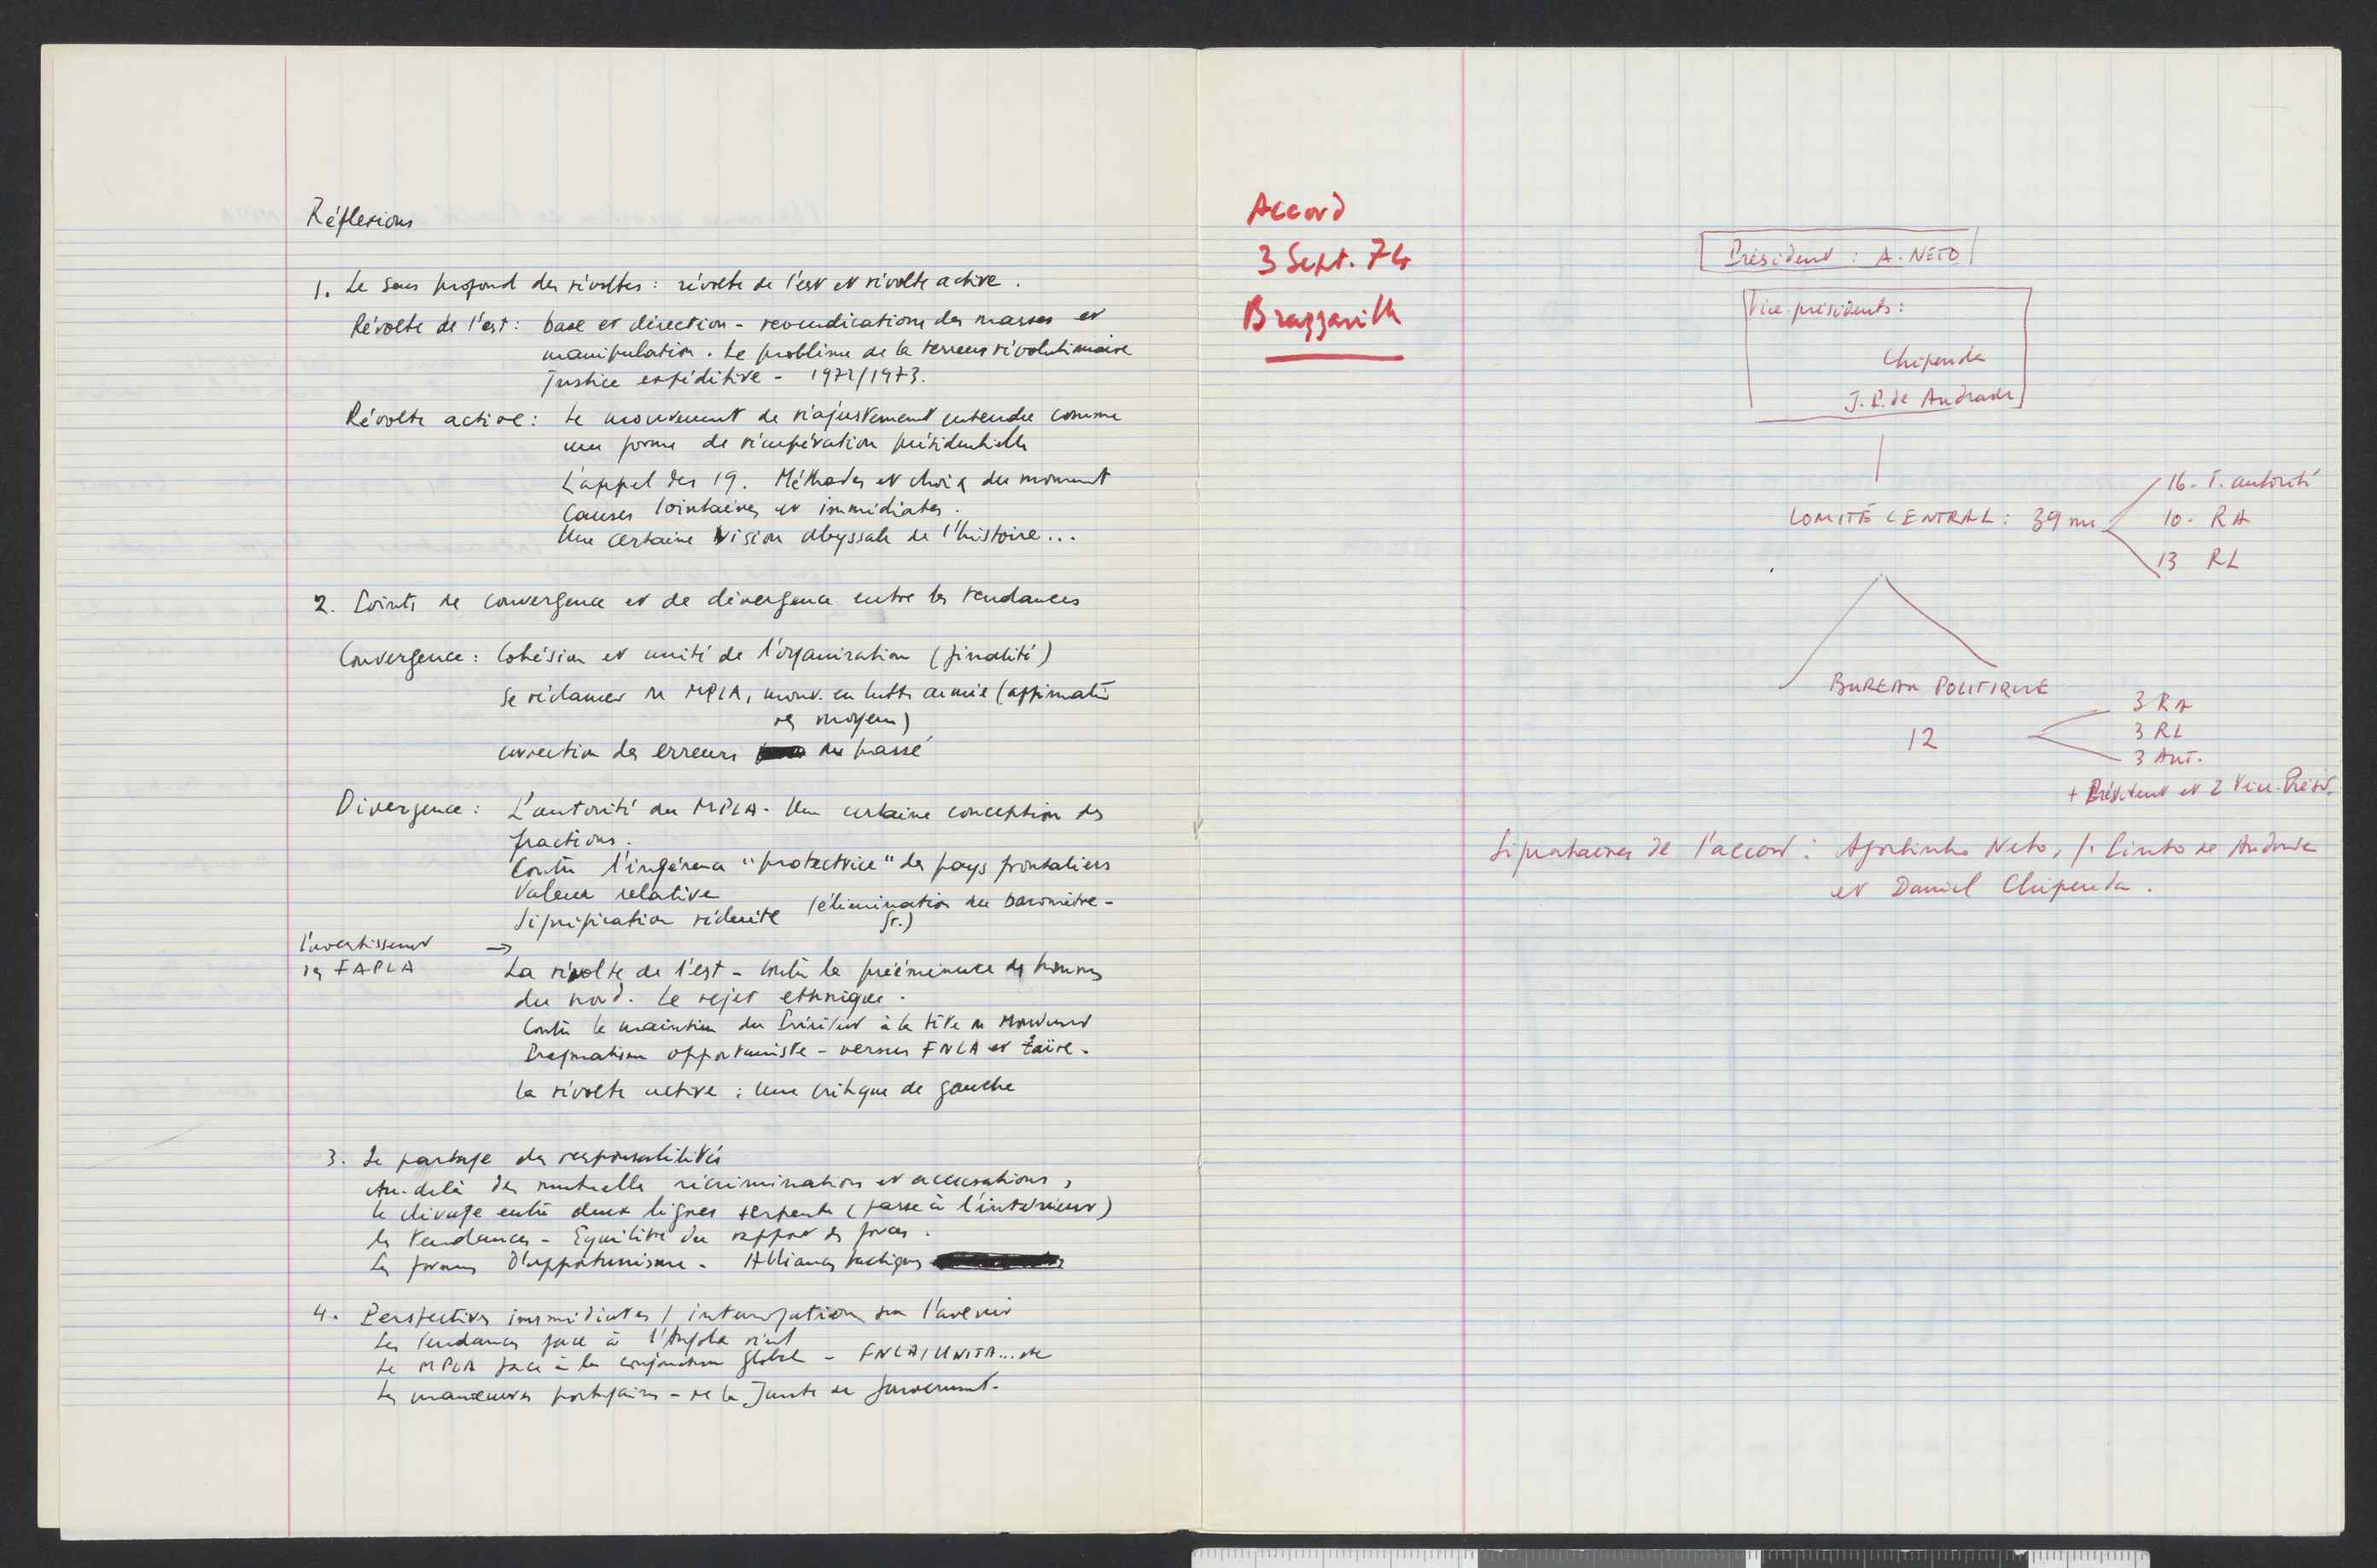 Réflexions
1. Le sens profond des révoltes : révolte de l'est et révolte active.
Révolte de l'est : base et direction - revendications des masses et
manipulation. Le problème de la terreur révolutionnaire
Justice expéditive - 1972/1973.
Révolte active : Le mouvement de réajustement entendu comme
une forme de récupération présidentielle
L'appel des 19. Méthodes et choix du moment
Causes lointaines et immédiates.
Une certaine vision abyssale de l'histoire...
2. Points de convergence et de divergence entre les tendances
Convergence : Cohésion et unité de l'organisation (finalité)
Se réclamer du MPLA, mouv. en lutte armée (affirmatió
des moyens)
correction des erreurs du passé
Divergence : L'autorité du MPLA. Une certaine conception des
fractions.
Contre l'ingérence "protectrice" des pays frontaliers
Valeur relative
Signification réduite (élimination du baromètre-
fr.)
L'investissement →
des FAPLA
La révolte de l'est - contre la prééminence des hommes
du nord. Le rejet ethnique.
Contre le maintien du Président à la tête du Mouvement
Pragmatisme opportuniste - versus FNLA et Zaïre.
La révolte active : une critique de gauche
3. Le partage des responsabilités
Au-delà des mutuelles récriminations et accusations,
le clivage entre deux lignes serpente (passe à l'intérieur)
les tendances - Equilibre du rapport des forces.
Les formes d'opportunisme. Alliances tactiques
4. Perspectives immédiates / interrogation sur l'avenir
Les tendances face à l'Angola réel
Le MPLA face à la conjoncture globale - FNLA/UNITA... etc
Les manœuvres portugaises - de la Junte de gouvernement.
Accord
3 Sept. 74
Brazzaville
Président : A. NETO
Vice-présidents :
Chipenda
J. P. de Andrade
COMITÉ CENTRAL : 39 me
16 - T. autorité
10 - RA
13 RL
BUREAU POLITIQUE
12
3 RA
3 RL
3 Aut.
+ Président et 2 Vice-Présid.
Signataires de l'accord : Agostinho Neto, J. Pinto de Andrade
et Daniel Chipenda.